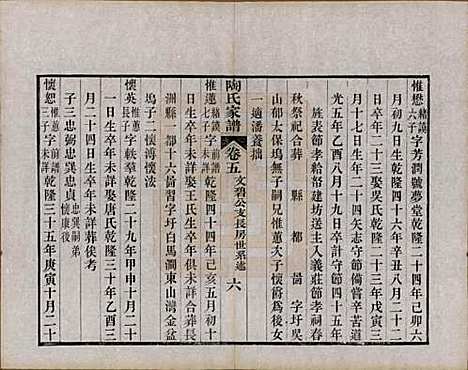 惟懋緒謨六子字芳潤號夢堂乾隆二十四年己卯六
月初九日生乾隆四十六年辛丑八月二十二
日卒年二十三娶吳氏乾隆二十三年戊寅三
月十七日生年二十四矢志守節備嘗辛苦道
光五年乙酉八月十九日卒計守節四十五年
旌表節孝給帑建坊送主入義莊節孝祠春
秋祭祀合葬 縣 都 啚 字圩吳
山郁太保塢無子嗣兄惟蕙次子懷爵為後女
一適潘養拙
陶氏家譜 卷五 文碧公支長房世系述 六
惟蓮緒謨七子字前譜乾隆四十四年己亥五月初十
日生卒年未詳娶王氏生卒年未詳合葬長
洲縣一都十六啚習字圩白馬澗東山灣金盆
塢子二懷溥懷法
懷英惟蕙長子字軼羣乾隆二十九年甲申十月二十
一日生卒年未詳娶唐氏乾隆三十年乙酉三
月二十四日生卒年未詳葬俟考
子三忠弼忠巽忠貞忠巽嗣弟懷康後
懷恕惟蕙三子字未詳乾隆三十五年庚寅十月二十